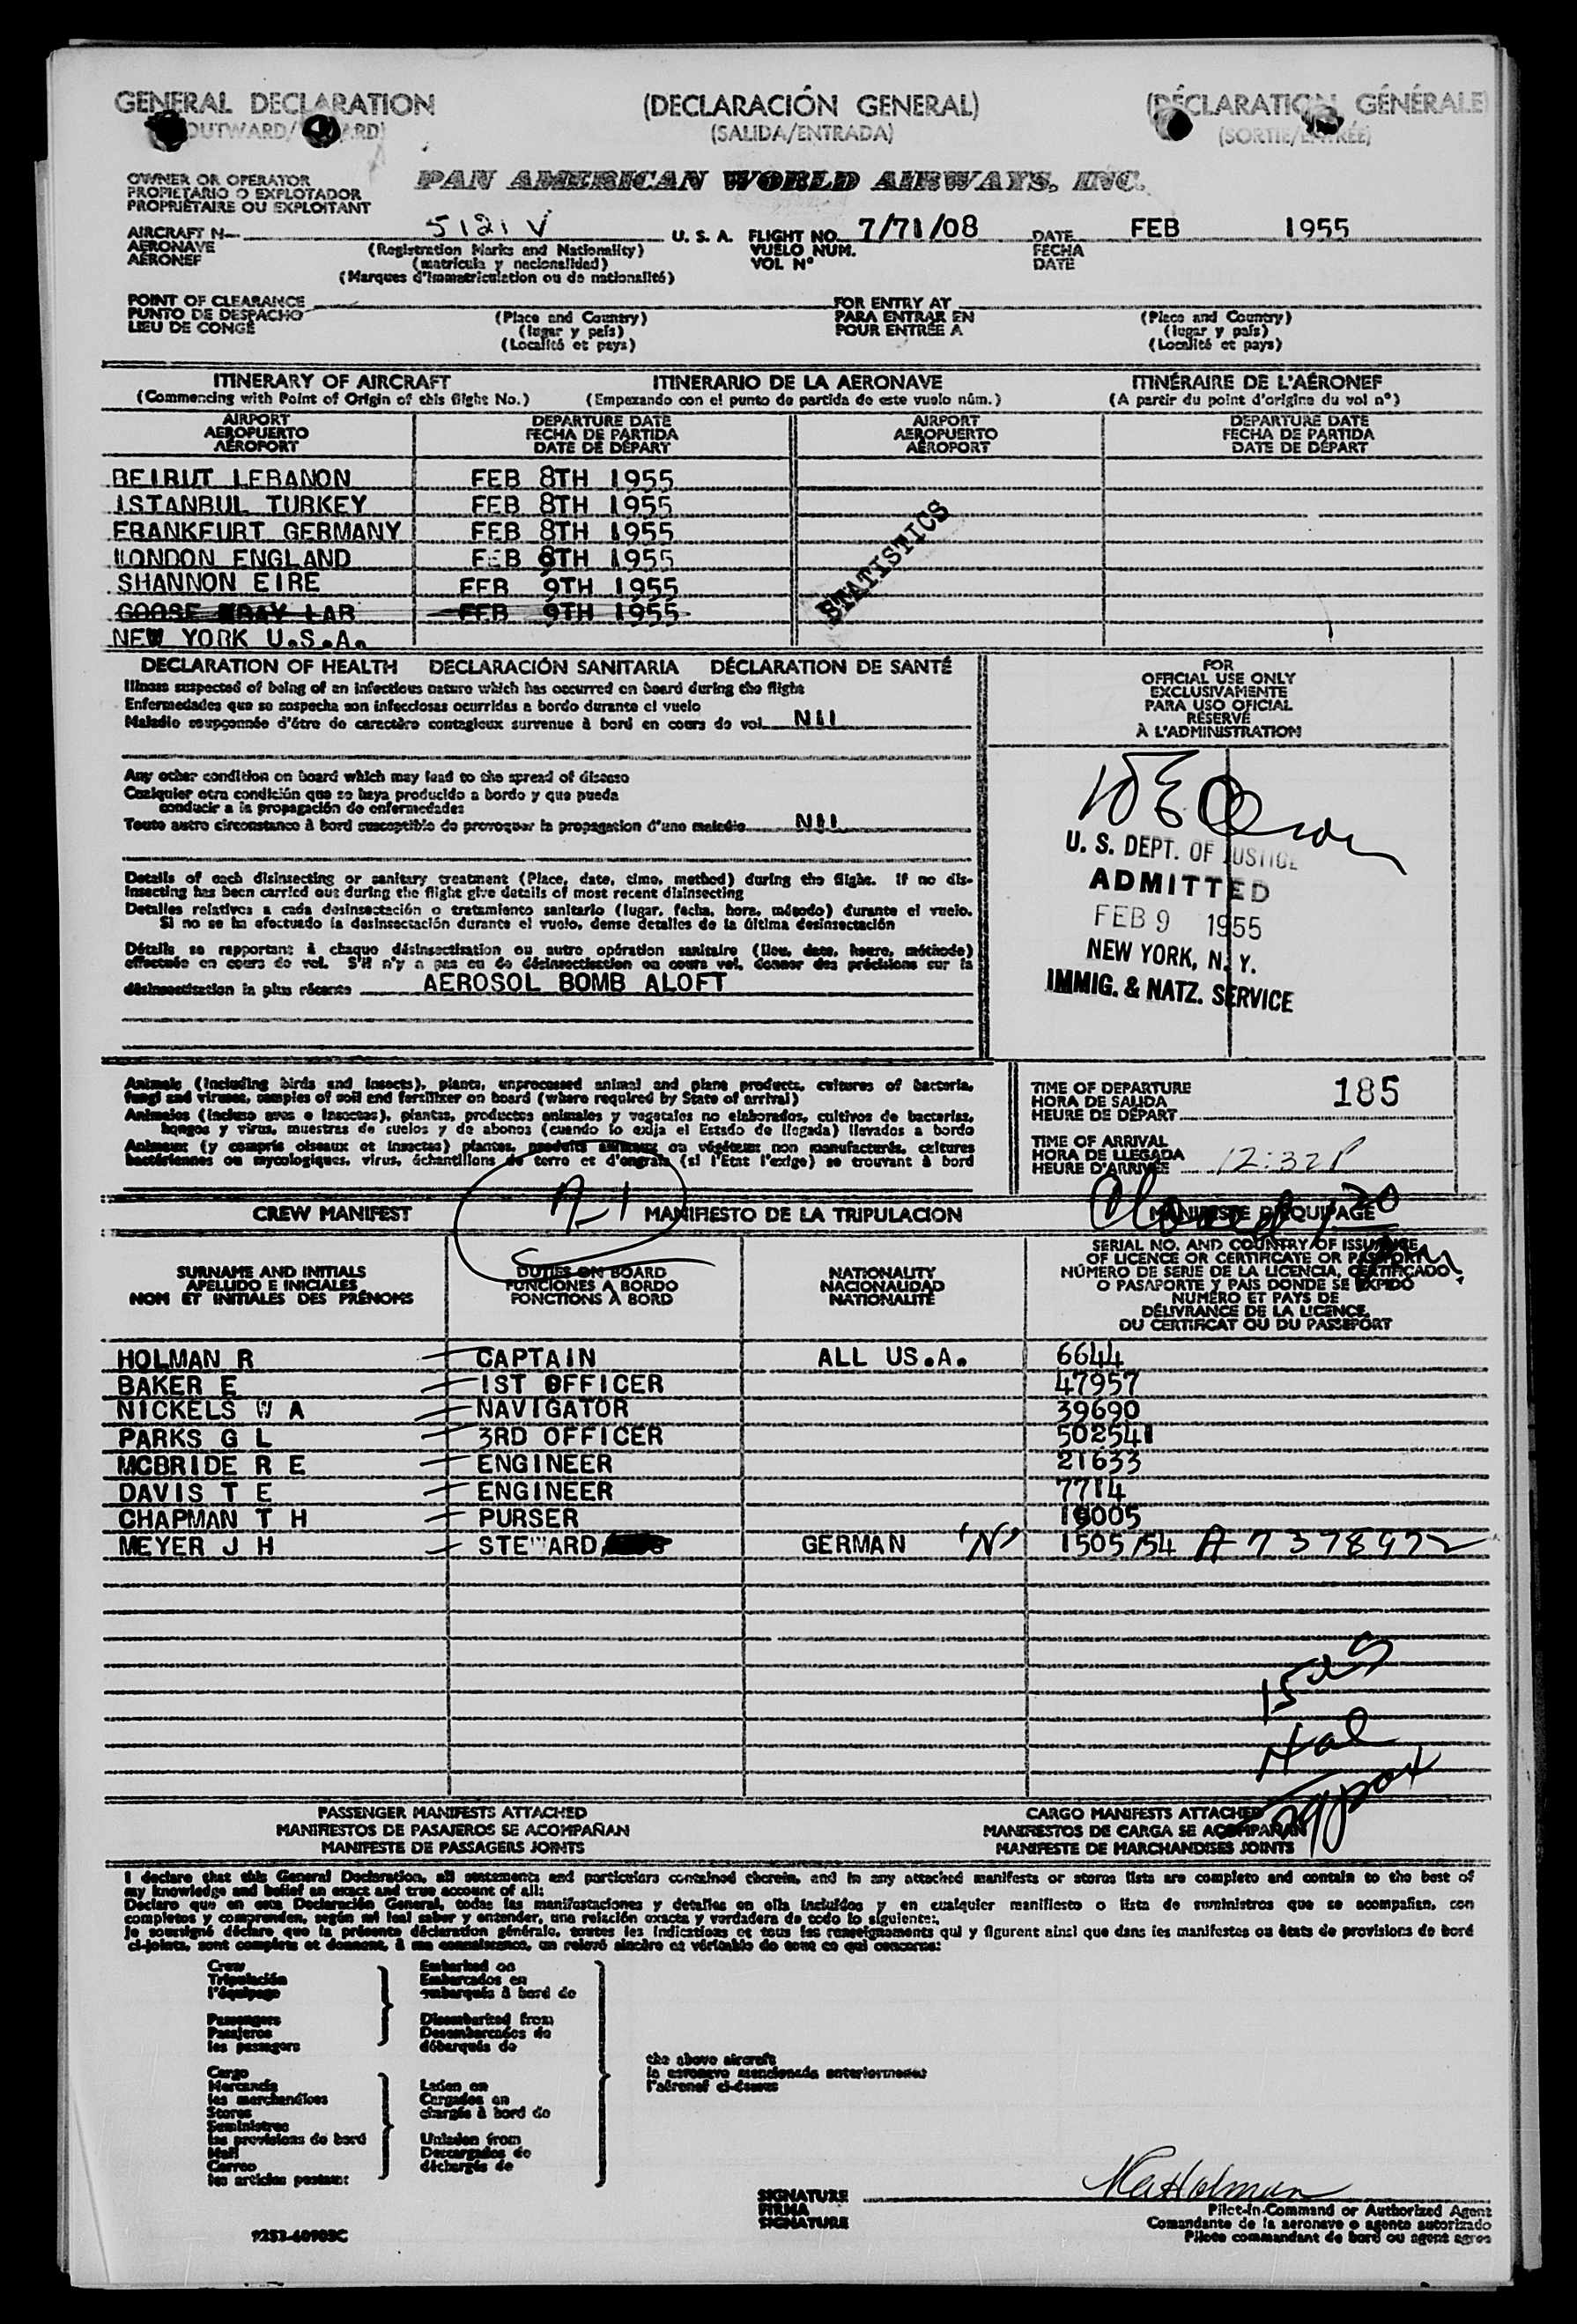 GENERAL DECLARATION (DECLARACIÓN GENERAL) (DÉCLARATION GÉNÉRALE)
(SALIDA/ENTRADA)
OWNER OR OPERATOR
PROPIETARIO O EXPLOTADOR
PROPRIÉTAIRE OU EXPLOITANT
PAN AMERICAN WORLD AIRWAYS, INC.
AIRCRAFT N- 5121 V U. S. A. FLIGHT NO. 7/71/08 DATE FEB 1955
AERONAVE (Registration Marks and Nationality) VUELO NUM. FECHA
AÉRONEF (matrícula y nacionalidad) VOL Nº DATE
(Marques d'immatriculation ou de nationalité)
POINT OF CLEARANCE FOR ENTRY AT
PUNTO DE DESPACHO (Place and Country) PARA ENTRAR EN (Place and Country)
LIEU DE CONGÉ (lugar y país) POUR ENTRÉE A (lugar y país)
(Localité et pays) (Localité et pays)
ITINERARY OF AIRCRAFT ITINERARIO DE LA AERONAVE ITINÉRAIRE DE L'AÉRONEF
(Commencing with Point of Origin of this flight No.) (Empezando con el punto de partida de este vuelo núm.) (A partir du point d'origine du vol nº)
AIRPORT DEPARTURE DATE AIRPORT DEPARTURE DATE
AEROPUERTO FECHA DE PARTIDA AEROPUERTO FECHA DE PARTIDA
AÉROPORT DATE DE DÉPART AÉROPORT DATE DE DÉPART
BEIRUT LEBANON FEB 8TH 1955
ISTANBUL TURKEY FEB 8TH 1955
FRANKFURT GERMANY FEB 8TH 1955
LONDON ENGLAND FEB 8TH 1955
SHANNON EIRE FEB 9TH 1955
GOOSE BAY LAB FEB 9TH 1955
NEW YORK U.S.A.
STATISTICS
DECLARATION OF HEALTH DECLARACIÓN SANITARIA DÉCLARATION DE SANTÉ
Illness suspected of being of an infectious nature which has occurred on board during the flight
Enfermedades que se sospecha son infecciosas ocurridas a bordo durante el vuelo
Maladie soupçonnée d'être de caractère contagieux survenue à bord en cours de vol NIL
Any other condition on board which may lead to the spread of disease
Cualquier otra condición que se haya producido a bordo y que pueda
conducir a la propagación de enfermedades
Toute autre circonstance à bord susceptible de provoquer la propagation d'une maladie NIL
Details of each disinsecting or sanitary treatment (Place, date, time, method) during the flight. If no dis-
insecting has been carried out during the flight give details of most recent disinsecting
Detalles relativos a cada desinsectación o tratamiento sanitario (lugar, fecha, hora, método) durante el vuelo.
Si no se ha efectuado la desinsectación durante el vuelo, dense detalles de la última desinsectación
Détails se rapportant à chaque désinsectisation ou autre opération sanitaire (lieu, date, heure, méthode)
effectuée en cours de vol. S'il n'y a pas eu de désinsectisation en cours vol, donner des précisions sur la
désinsectisation la plus récente AEROSOL BOMB ALOFT
FOR
OFFICIAL USE ONLY
EXCLUSIVAMENTE
PARA USO OFICIAL
RÉSERVÉ
À L'ADMINISTRATION
U. S. DEPT. OF JUSTICE
ADMITTED
FEB 9 1955
NEW YORK, N. Y.
IMMIG. & NATZ. SERVICE
Animals (including birds and insects), plants, unprocessed animal and plane products, cultures of bacteria,
fungi and viruses, samples of soil and fertilizer on board (where required by State of arrival)
Animales (incluso aves e insectos), plantas, productos animales y vegetales no elaborados, cultivos de bacterias,
hongos y virus, muestras de suelos y de abonos (cuando lo exija el Estado de llegada) llevados a bordo
Animaux (y compris oiseaux et insectes) plantes, produits animaux ou végétaux non manufacturés, cultures
bactériennes ou mycologiques, virus, échantillons de terre et d'engrais (si l'Etat l'exige) se trouvant à bord
TIME OF DEPARTURE
HORA DE SALIDA 185
HEURE DE DÉPART
TIME OF ARRIVAL
HORA DE LLEGADA 12:32P
HEURE D'ARRIVÉE
CREW MANIFEST MANIFIESTO DE LA TRIPULACION MANIFESTE D'EQUIPAGE
SURNAME AND INITIALS
APELLIDO E INICIALES
NOM ET INITIALES DES PRÉNOMS
DUTIES ON BOARD
FUNCIONES A BORDO
FONCTIONS À BORD
NATIONALITY
NACIONALIDAD
NATIONALITÉ
SERIAL NO. AND COUNTRY OF ISSUANCE
OF LICENCE OR CERTIFICATE OR PASSPORT
NÚMERO DE SERIE DE LA LICENCIA, CERTIFICADO
O PASAPORTE Y PAIS DONDE SE EXPIDÓ
NUMÉRO ET PAYS DE
DÉLIVRANCE DE LA LICENCE,
DU CERTIFICAT OU DU PASSEPORT
HOLMAN R CAPTAIN ALL US.A. 6644
BAKER E 1ST OFFICER 47957
NICKELS W A NAVIGATOR 39690
PARKS G L 3RD OFFICER 502541
MCBRIDE R E ENGINEER 21633
DAVIS T E ENGINEER 7714
CHAPMAN T H PURSER 19005
MEYER J H STEWARD GERMAN 'N' 1505/54 A7378972
PASSENGER MANIFESTS ATTACHED CARGO MANIFESTS ATTACHED
MANIFIESTOS DE PASAJEROS SE ACOMPAÑAN MANIFIESTOS DE CARGA SE ACOMPAÑAN
MANIFESTE DE PASSAGERS JOINTS MANIFESTE DE MARCHANDISES JOINTS
I declare that this General Declaration, all statements and particulars contained therein, and in any attached manifests or stores lists are complete and contain to the best of
my knowledge and belief an exact and true account of all:
Declaro que en esta Declaración General, todas las manifestaciones y detalles en ella incluidos y en cualquier manifiesto o lista de suministros que se acompañen, son
completos y comprenden, según mi leal saber y entender, una relación exacta y verdadera de todo lo siguiente:
Je soussigné déclare que la présente déclaration générale, toutes les indications et tous les renseignements qui y figurent ainsi que dans les manifestes ou états de provisions de bord
ci-joints, sont complets et donnent, à ma connaissance, un relevé sincère et véritable de tout ce qui concerne:
Crew Embarked on
Tripulación Embarcados en
l'équipage embarqués à bord de
Passengers Disembarked from
Pasajeros Desembarcados de
les passagers débarqués de
the above aircraft
la aeronave mencionada anteriormente
l'aéronef ci-dessus
Cargo
Mercancía Laden on
les marchandises Cargados en
Stores chargés à bord de
Suministros
les provisions de bord Unladen from
Mail Descargados de
Correo déchargés de
les articles postaux
SIGNATURE
FIRMA
SIGNATURE
Pilot-in-Command or Authorized Agent
Comandante de la aeronave o agente autorizado
Pilote commandant de bord ou agent agréé
9253-60903C